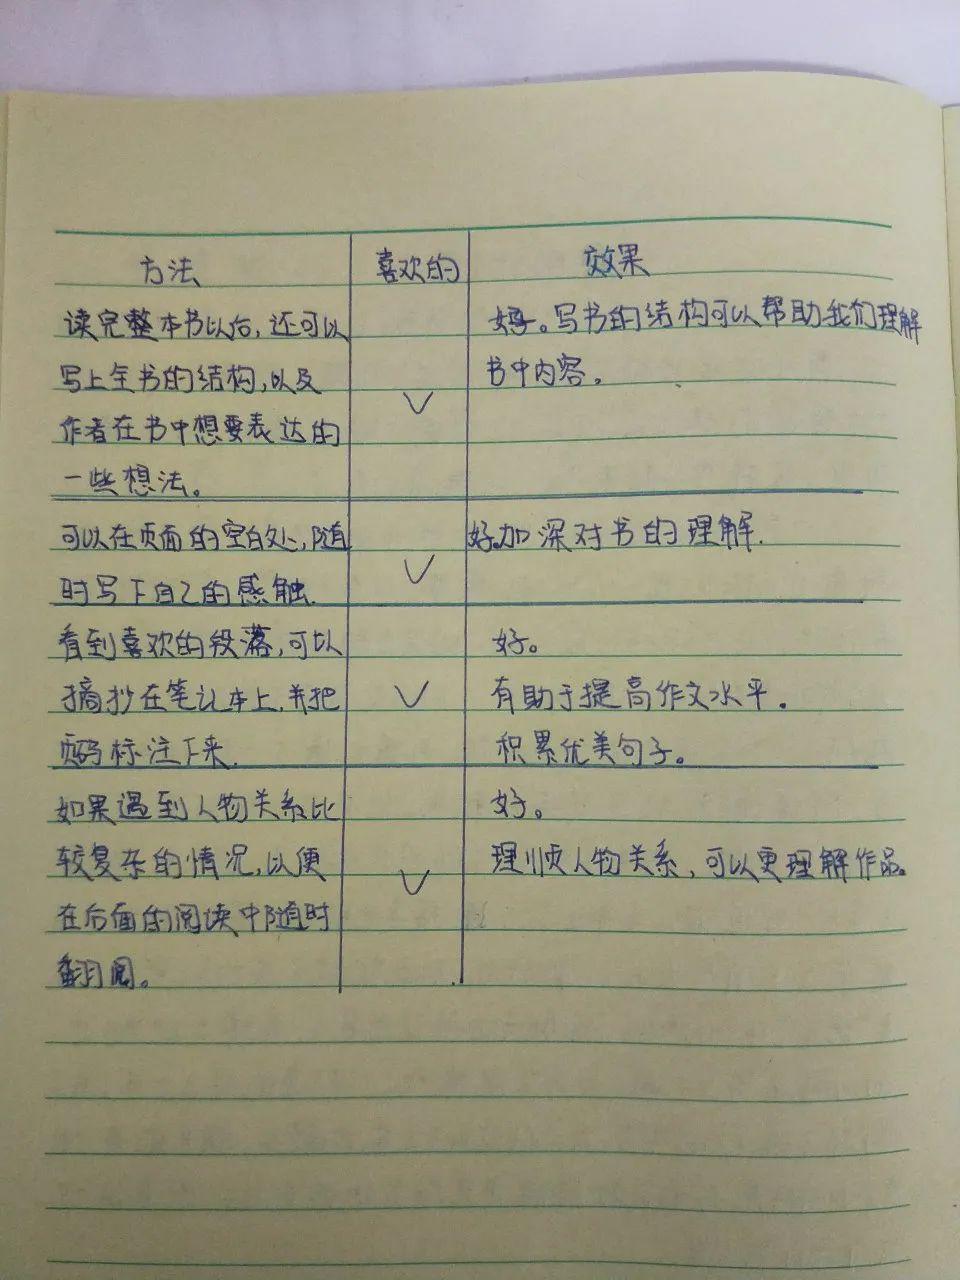 方法 喜欢的 效果
读完整本书以后,还可以 好。写书的结构可以帮助我们理解
写上全书的结构,以及 书中内容。
作者在书中想要表达的 ✓
一些想法。
可以在页面的空白处,随 好。加深对书的理解.
时写下自己的感触. ✓
看到喜欢的段落,可以 好。
摘抄在笔记本上,并把 ✓ 有助于提高作文水平。
页码标注下来. 积累优美句子。
如果遇到人物关系比 好。
较复杂的情况,以便 ✓ 理顺人物关系,可以更理解作品。
在后面的阅读中随时
翻阅。